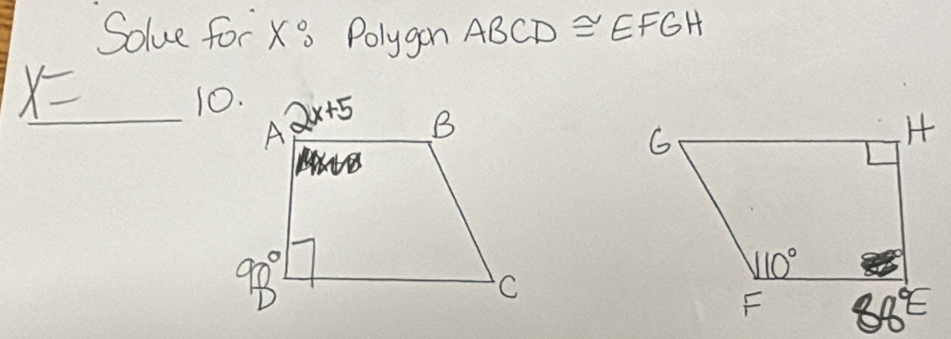 Solve for x: Polygon ABCD ≅ EFGH
X= ______ 10.
A 2x+5 B
G H
90°
D C
110°
F 88° E